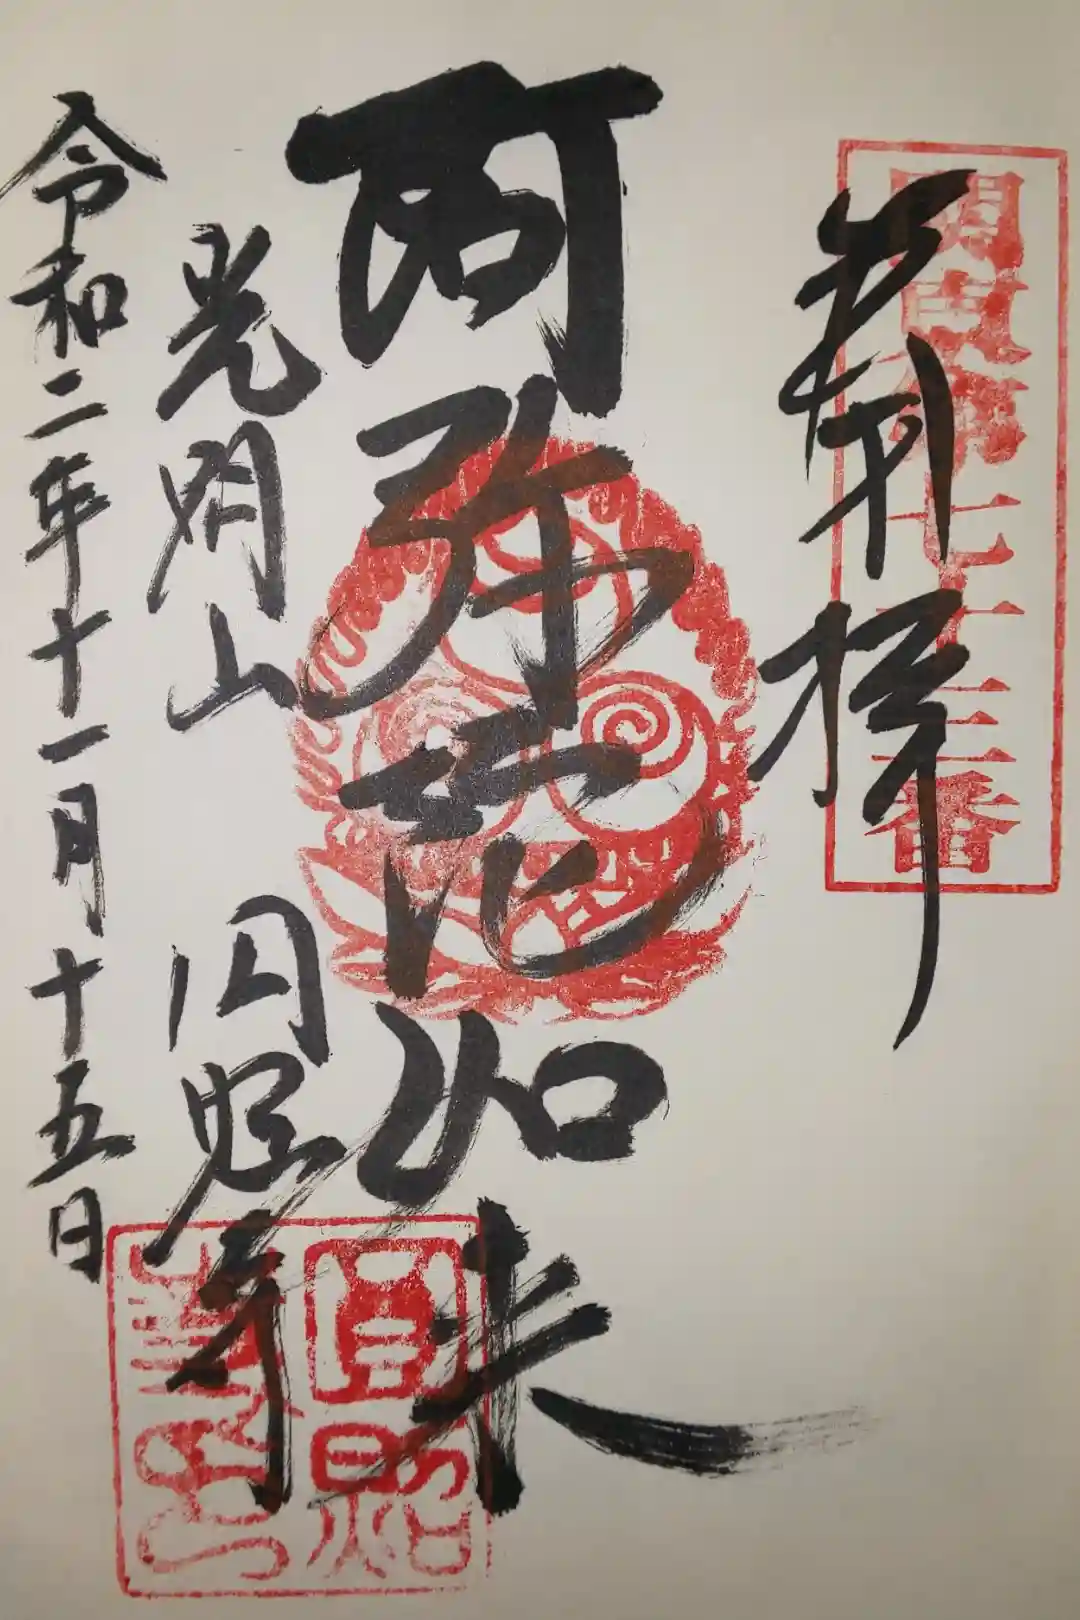 奉拝
関東第七十三番
阿弥陀如来
光明山
円照寺
令和二年十一月十五日